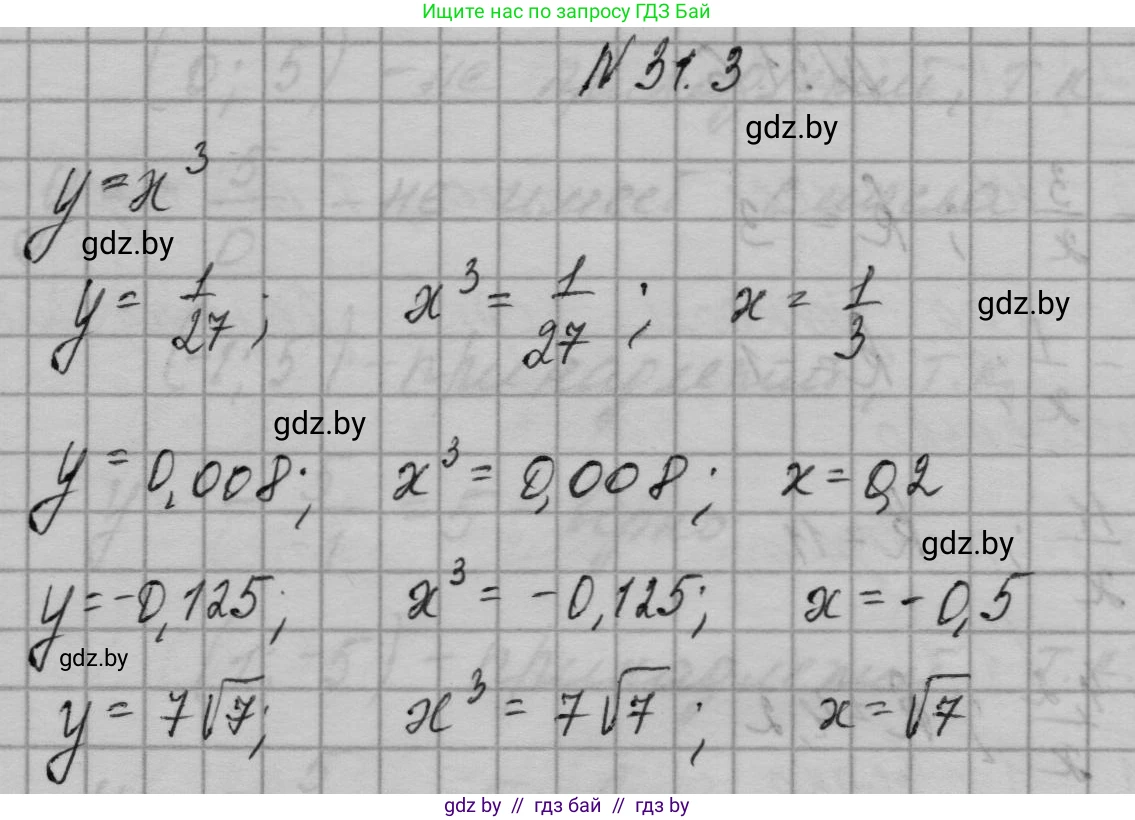 Ищите нас по запросу ГДЗ Бай
N 31.3
gdz.by
y = x³
gdz.by
y = 1/27; x³ = 1/27; x = 1/3
gdz.by
gdz.by
y = 0,008; x³ = 0,008; x = 0,2
gdz.by
y = -0,125; x³ = -0,125; x = -0,5
gdz.by
y = 7√7; x³ = 7√7; x = √7
gdz by // гдз бай // гдз by